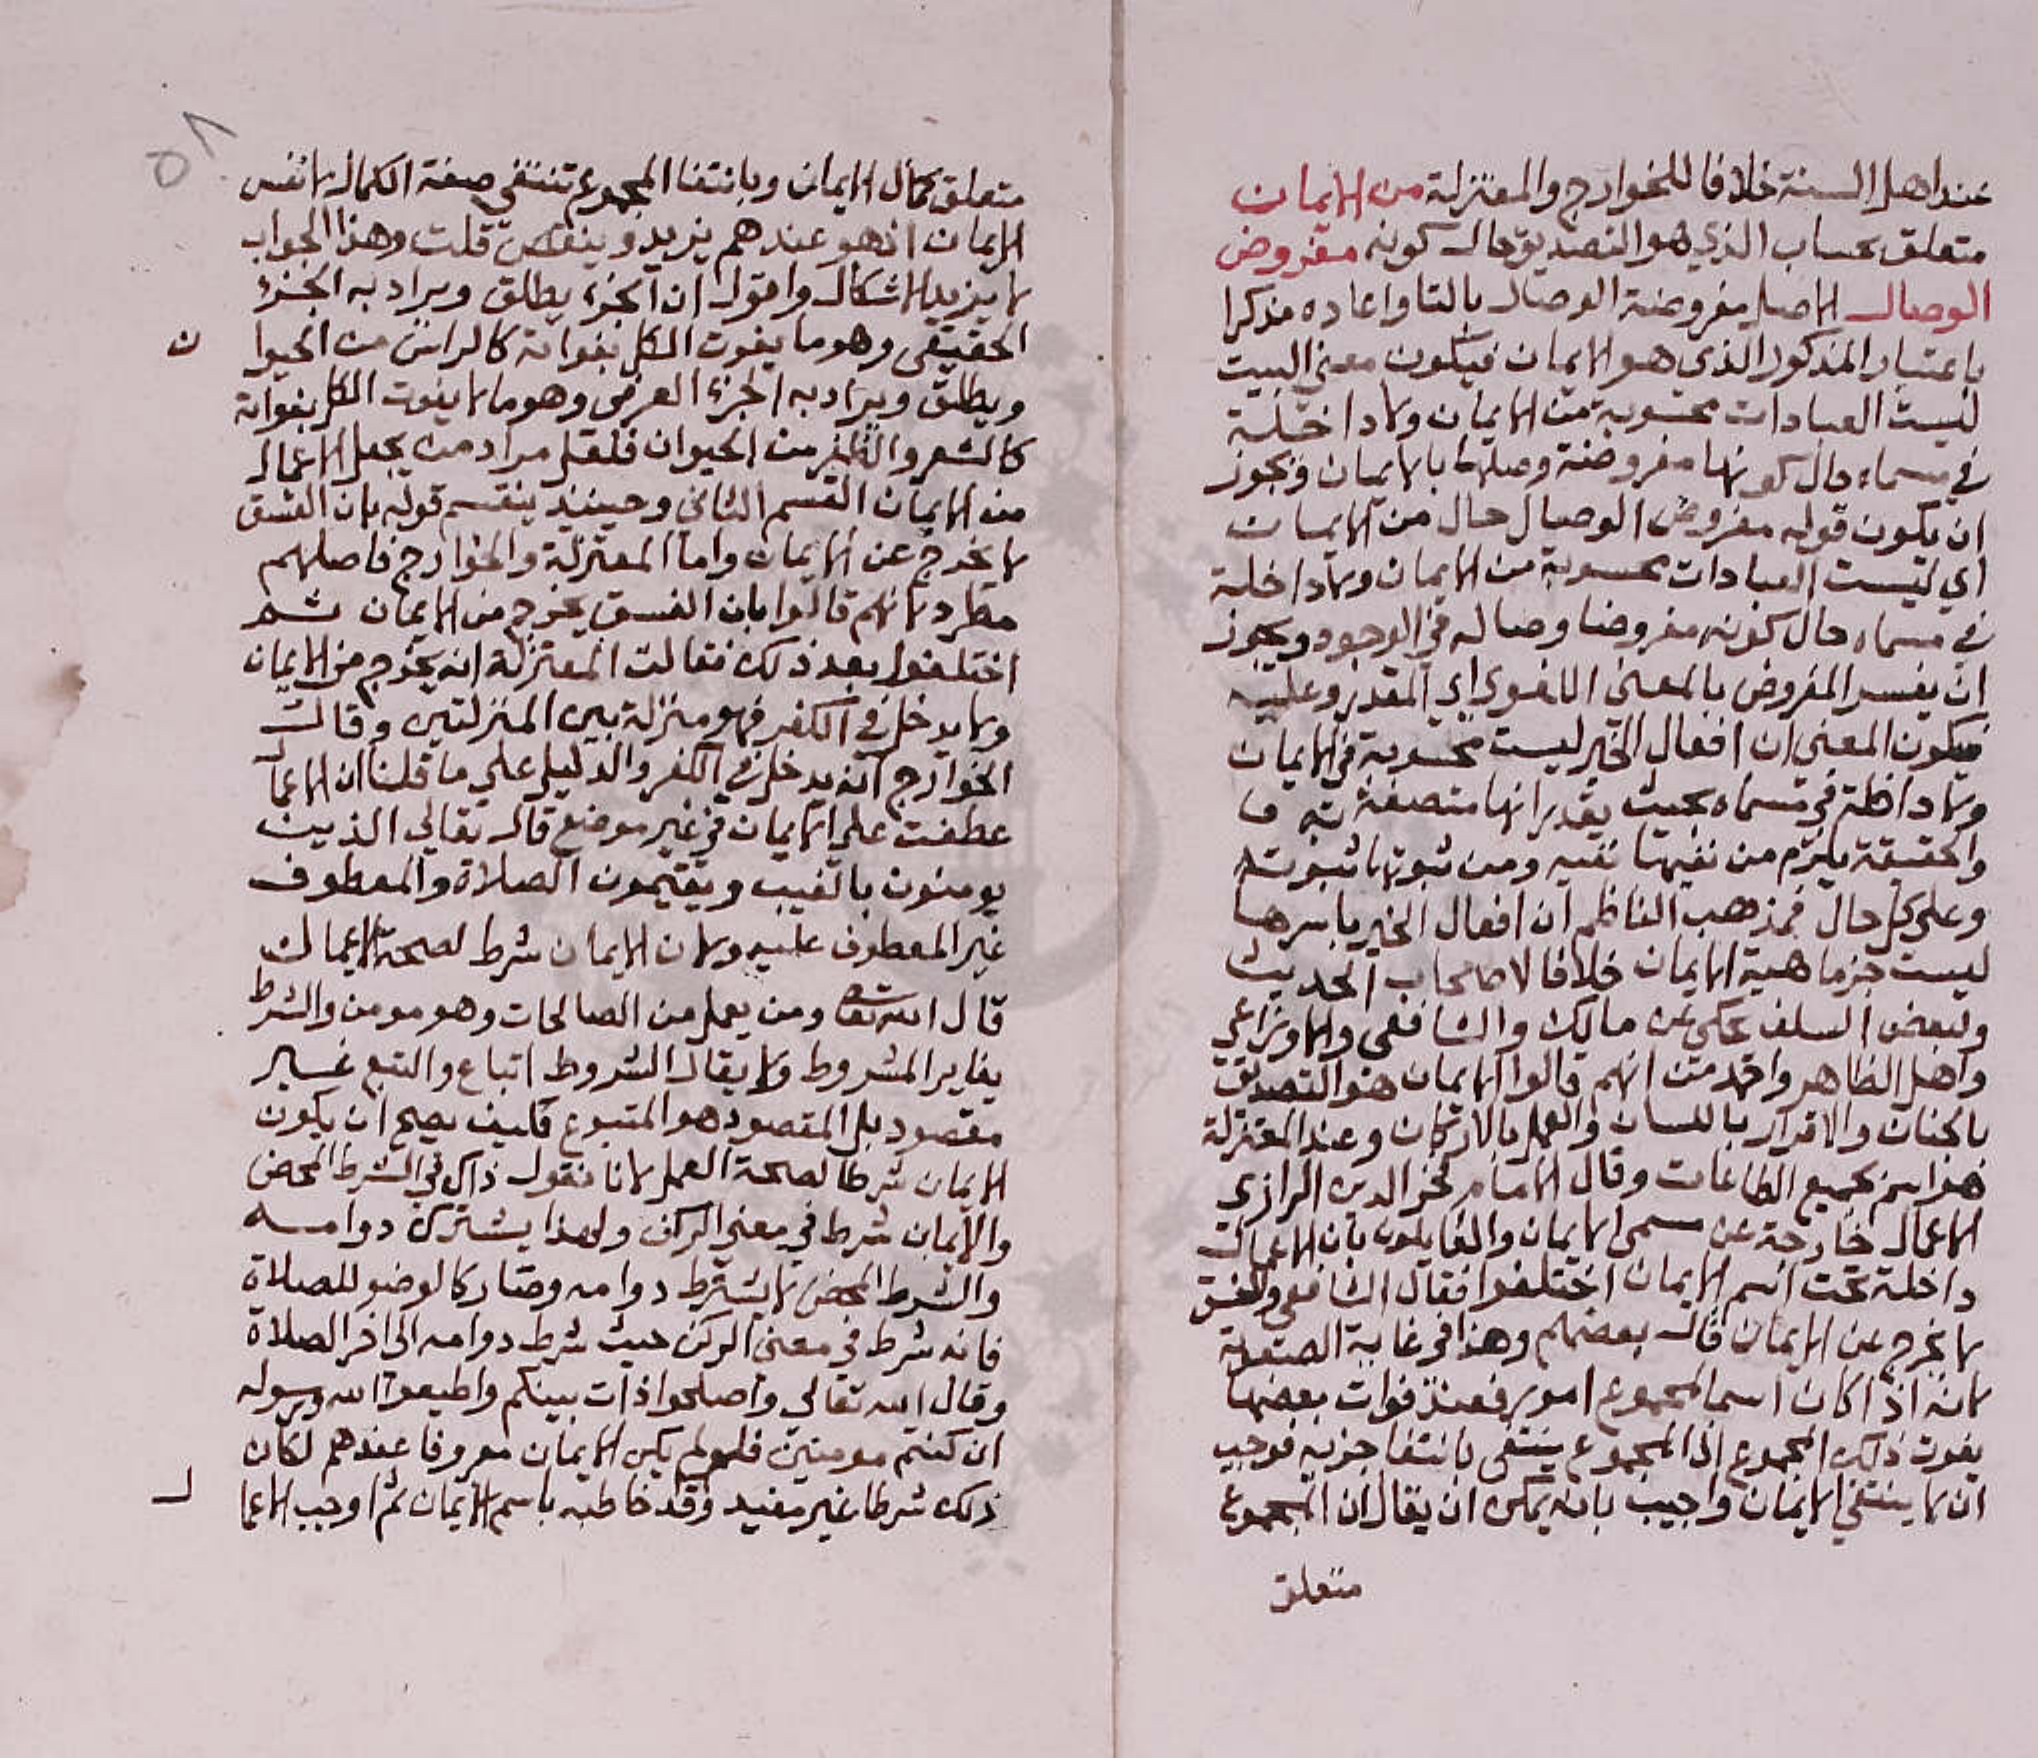 عند اهل السنة خلافا للخوارج والمعتزلة من الايمان
متعلق بحساب الذي هو التصديق حال كونه مفروض
الوصال الاصل مفروضة الوصال بالتا واعاده مذكرا
باعتبار المذكور الذي هو الايمان فيكون معني البيت
ليست العبادات محسوبة من الايمان ولا داخلة
في مسماه حال كونها مفروضة وصلها بالايمان ويجوز
ان يكون قوله مفروض الوصال حال من الايمان
اي ليست العبادات محسوبة من الايمان ولا داخلة
في مسماه حال كونه مفروضا وصاله في الوجود ويجوز
ان يفسر المفروض بالمعني اللغوي اي المقدر وعليه
فيكون المعني ان افعال الخير ليست محسوبة في الايمان
ولا داخلة في مسماه بحيث يقدر انها متصفة به
والحقيقة يلزم من نفيها نفيه ومن ثبوتها ثبوته
وعلي كل حال فمذهب الناظم ان افعال الخير باسرها
ليست جزء ماهية الايمان خلافا لاصحاب الحديث
ولبعض السلف يحكي عن مالك والشافعي والاوزاعي
واهل الظاهر واحمد من انهم قالوا الايمان هو التصديق
بالجنان والاقرار باللسان والعمل بالاركان وعند المعتزلة
هو اسم لجميع الطاعات وقال الامام فخر الدين الرازي
الاعمال خارجة عن مسمي الايمان والقايلون بان الاعمال
داخلة تحت اسم الايمان اختلفوا فقال الشافعي والفسق
لا يخرج عن الايمان قال بعضهم وهذا في غاية الصعوبة
لانه اذا كان اسما لمجموع امور فعند فوات بعضها
يفوت ذلك المجموع اذ المجموع ينتفي بانتفا جزيه فوجب
ان لا ينتفي الايمان واجيب بانه يمكن ان يقال ان المجموع
متعلق
٥٨
متعلق بكمال الايمان وبانتفا المجموع تنتفي صفة الكمال لا نفس
الايمان اذ هو عندهم يزيد وينقص قلت وهذا الجواب
لا يزيد الاشكال واقول ان الجزء يطلق ويراد به الجزء
الحقيقي وهو ما يفوت الكل بفواته كالراس من الحيوا ن
ويطلق ويراد به الجزء العرفي وهو ما لا يفوت الكل بفواته
كالشعر والظفر من الحيوان فلعل مراد من يجعل الاعمال
من الايمان القسم الثاني وحينيذ ينقسم قوله بان الفسق
لا يخرج عن الايمان واما المعتزلة والخوارج فاصلهم
مطرد لانهم قالوا بان الفسق يخرج من الايمان ثم
اختلفوا بعد ذلك فقالت المعتزلة انه يخرج من الايمان
ولا يدخل في الكفر فهو منزلة بين المنزلتين وقالت
الخوارج انه يدخل في الكفر والدليل علي ما قلنا ان الاعمال
عطفت علي الايمان في غير موضع قال تعالي الذين
يومنون بالغيب ويقيمون الصلاة والمعطوف
غير المعطوف عليه ولان الايمان شرط لصحة الاعمال
قال الله تعا ومن يعمل من الصالحات وهو مومن والشرط
يغاير المشروط ولا يقال الشروط اتباع والتبع غير
مقصود بل المقصود هو المتبوع فكيف يصح ان يكون
الايمان شرطا لصحة العمل لانا نقول ذاك في الشرط المحض
والايمان شرط في معني الركن ولهذا يشترك دوامه
والشرط المحض لا يشترط دوامه وصار كالوضو للصلاة
فانه شرط في معني الركن حيث شرط دوامه الي اخر الصلاة
وقال الله تعالي واصلحوا ذات بينكم واطيعوا الله ورسوله
ان كنتم مومنين فلو لم يكن الايمان معروفا عندهم لكان
ذلك شرطا غير مفيد وقد خاطبه باسم الايمان ثم اوجب الاعما ل